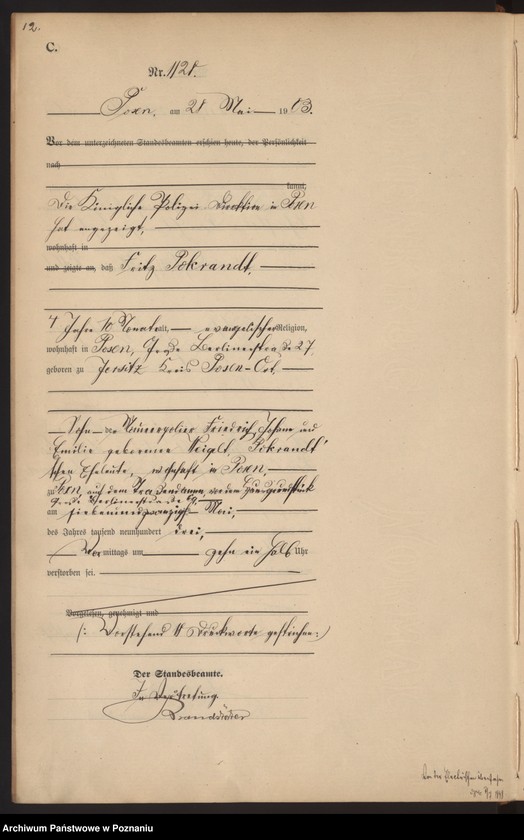 12.
C.
Nr. 1128.
Posen, am 28 Mai 1903.
Vor dem unterzeichneten Standesbeamten erschien heute, der Persönlichkeit
nach
kannt,
Die Königliche Polizei Direktion in Posen
hat angezeigt,
wohnhaft in
und zeigte an, daß Fritz Pokrandt,
4 Jahre 10 Monate alt, evangelischer Religion,
wohnhaft in Posen, Große Berlinerstraße 27,
geboren zu Jersitz Kreis Posen-Ost,
Sohn der Friedrich Johann und
Emilie geborenen Weigelt, Pokrandt'
schen Eheleute, wohnhaft in Posen,
zu Posen, auf dem vor dem Hausgrundstück
Große Berlinerstraße
am siebenundzwanzigsten Mai,
des Jahres tausend neunhundert drei,
Vormittags um zehn ein halb Uhr
verstorben sei.
Vorgelesen, genehmigt und
(: Vorstehend 11 Druckworte gestrichen :)
Der Standesbeamte.
In Vertretung.
Archiwum Państwowe w Poznaniu